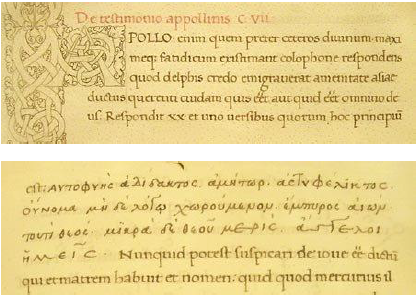 De testimonio appollinis C. VII
APOLLO enim quem preter ceteros diuinum maxi
meq; fatidicum existimant colophone respondens
quod delphis credo emigrauerat amenitate asiae
ductus querenti cuidam quis eēt aut quid eēt omnino de
us. Respondit xx et uno uersibus quorum hoc principiū
est: αυτοφυης αδιδακτος. αμητωρ. αστυφελικτος
ουνομα μηδε λογω χωρουμενον. εμπιρος αιων
τουτι θεος. μικρα δε θεου μερις. αγγελοι
ημεις. Nunquid potest suspicari de ioue eē dictū
qui et matrem habuit et nomen. quid quod mercurius il